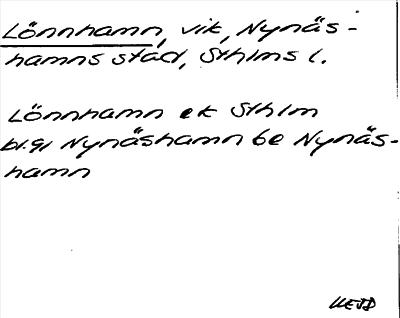 Lönnhamn, vik, Nynäs-
hamns stad, Sthlms l.
Lönnhamn ek Sthlm
bl.91 Nynäshamn be Nynäs-
hamn